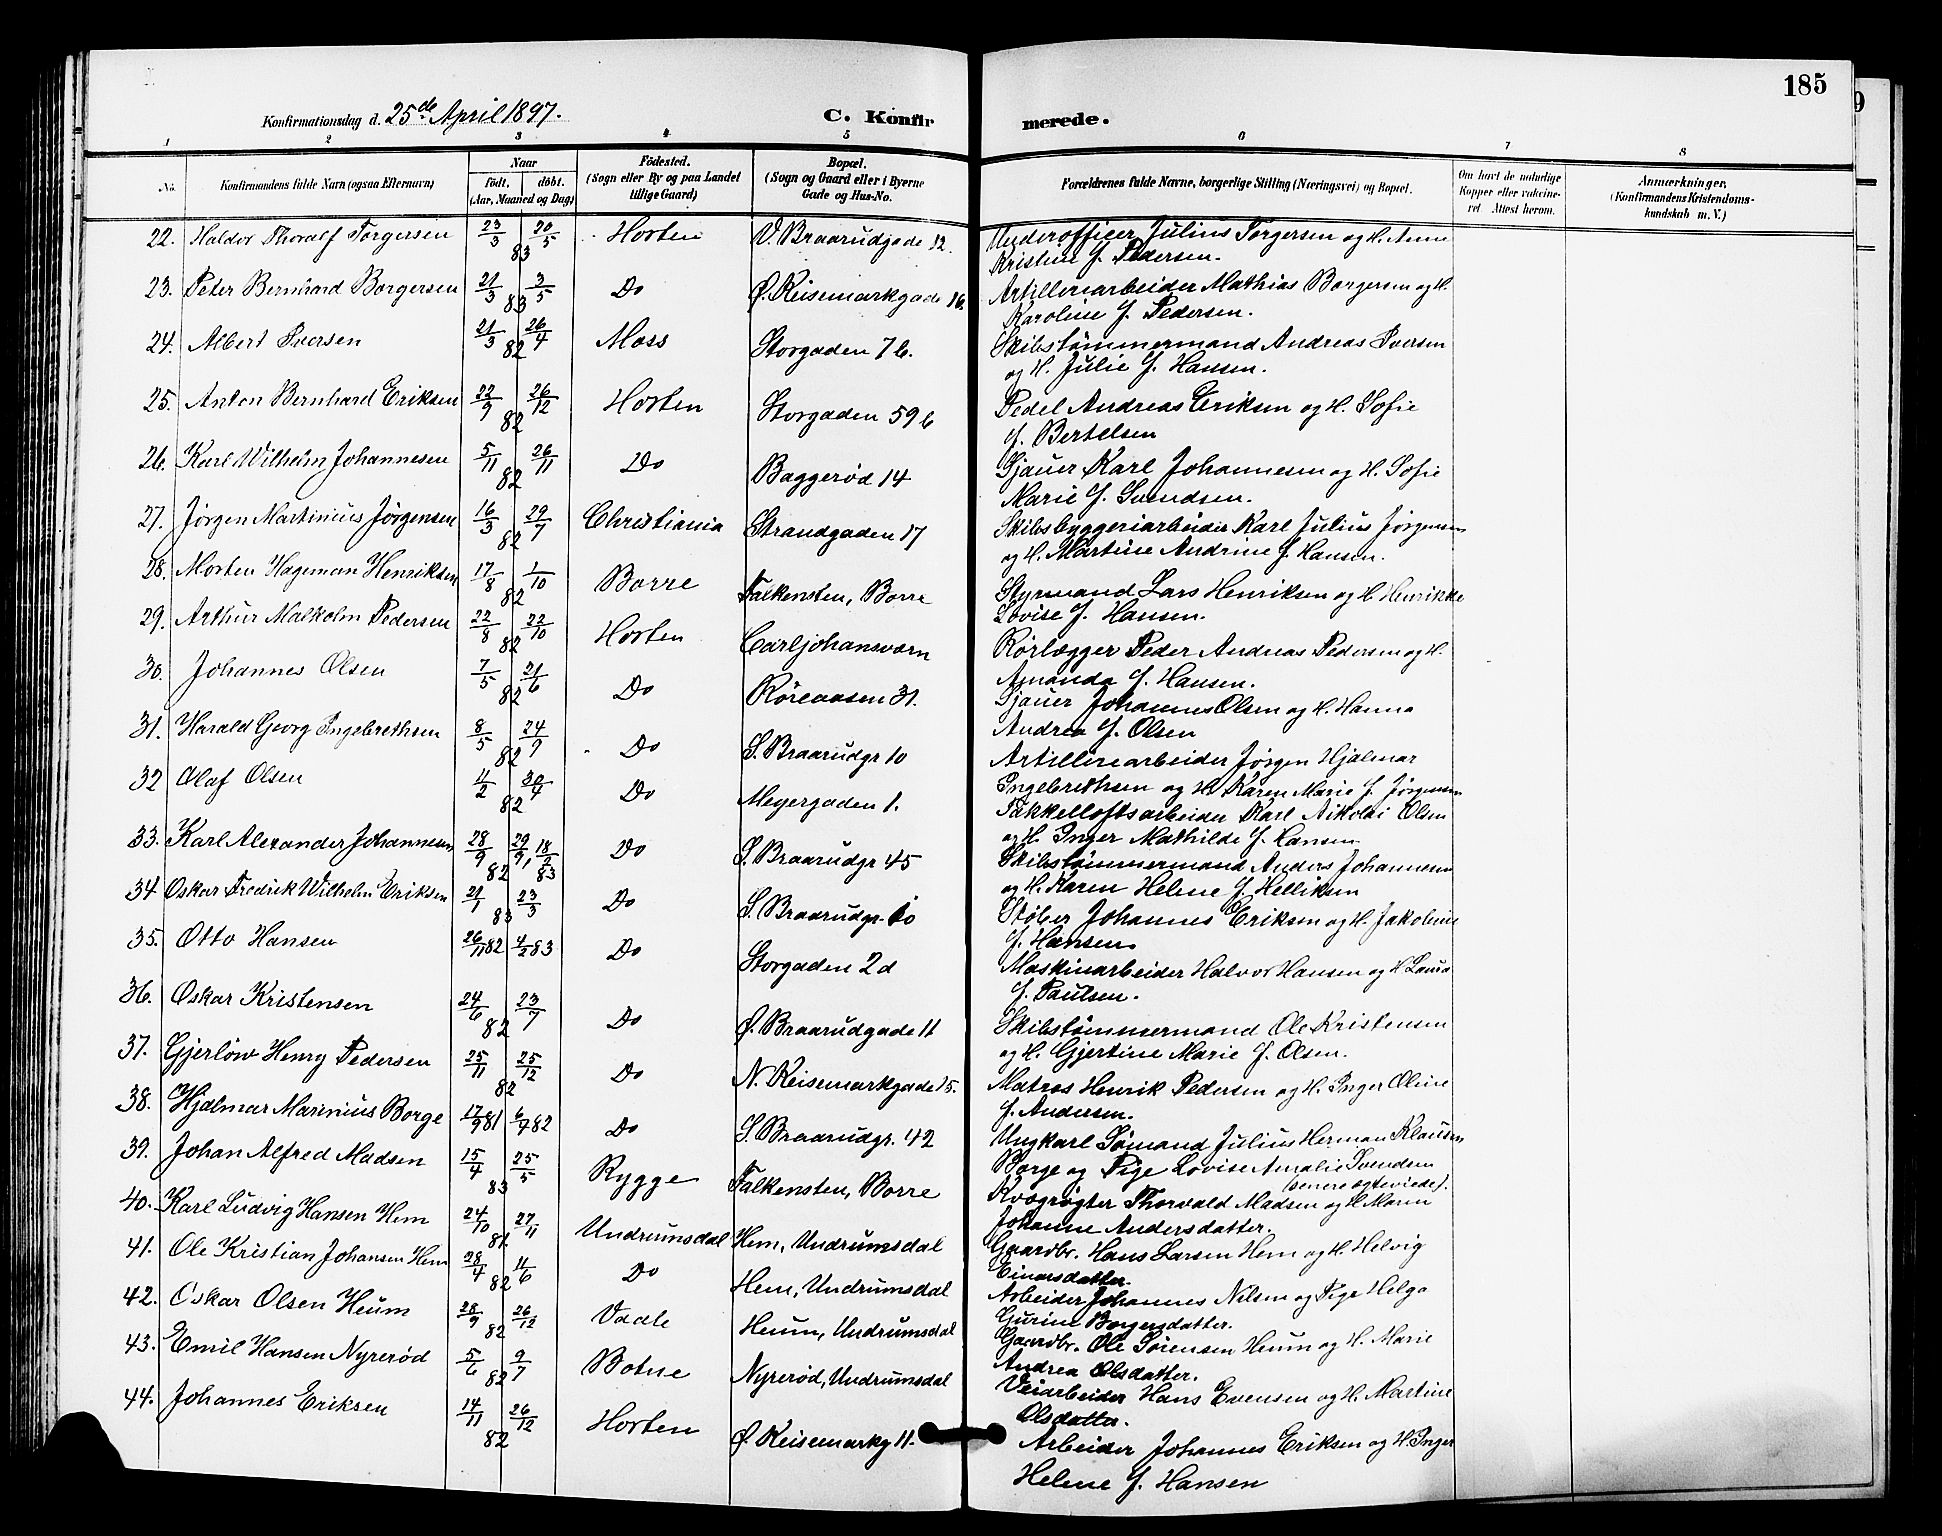 185
Konfirmationsdag d. 25de April 1897.
C. Konfirmerede.
1 2 3 4 5 6 7 8
No.
Konfirmandens fulde Navn (ogsaa Efternavn)
Naar
födt, döbt.
(Aar, Maaned og Dag)
Födested.
(Sogn eller By og paa Landet
tillige Gaard)
Bopæl.
(Sogn og Gaard eller i Byerne
Gade og Hus-No.
Forældrenes fulde Navne, borgerlige Stilling (Næringsvei) og Bopæl.
Om havt de naturlige
Kopper eller vakcine-
ret. Attest herom.
Anmærkninger,
(Konfirmandens Kristendoms-
kundskab m. V.)
22. Haldor Thoralf Torgersen 23/3 20/5 83 Horten V. Braarudgade 12. Underofficer Julius Torgersen og H. Anne
Kristine f. Pedersen.
23. Peter Bernhard Borgersen 21/3 3/5 83 Do Ø. Keisemarkgade 16. Artilleriarbeider Mathias Borgersen og H.
Karoline f. Pedersen.
24. Albert Iversen 21/3 26/4 82 Moss Storgaden 7 b. Skibstømmermand Andreas Iversen
og H. Julie f. Hansen.
25. Anton Bernhard Eriksen 22/9 26/12 82 Horten Storgaden 59 b Pedel Andreas Eriksen og H. Sofie
f. Bertelsen
26. Karl Wilhelm Johannesen 5/11 26/11 82 Do Baggerød 14 Sjauer Karl Johannesen og H. Sofie
Marie f. Svendsen.
27. Jørgen Martinius Jørgensen 16/3 29/7 82 Christiania Strandgaden 17 Skibsbyggeriarbeider Karl Julius Jørgensen
og H. Martine Andrine f. Hansen.
28. Morten Hageman Henriksen 17/8 1/10 82 Borre Falkensten, Borre Styrmand Lars Henriksen og H. Henrikke
Lovise f. Hansen.
29. Arthur Malkolm Pedersen 22/8 22/10 82 Horten Carljohansværn Rørlægger Peder Andreas Pedersen og H.
Amanda f. Hansen.
30. Johannes Olsen 7/5 21/6 82 Do Røreaasen 31. Sjauer Johannes Olsen og H. Hanna
Andrea f. Olsen
31. Harald Georg Ingebrethsen 8/5 24/9 82 Do S. Braarudgr 10 Artilleriarbeider Jørgen Hjalmar
Ingebrethsen og H. Karen Marie f. Jørgensen
32 Olaf Olsen 11/2 30/4 82 Do Meyergaden 1. Takkelloftsarbeider Karl Nikolai Olsen
og H. Inger Mathilde f. Hansen
33. Karl Alexander Johannesen 28/9 82 29/9, 18/2 83 Do S. Braarudgr 45 Skibstømmermand Anders Johannesen
og H. Karen Helene f. Helliksen
34 Oskar Fredrik Wilhelm Eriksen 21/1 23/3 83 Do S. Braarudgr. 60 Støber Johannes Eriksen og H. Jakobine
f. Hansen.
35. Otto Hansen 26/11 82 4/2 83 Do Storgaden 2 d Maskinarbeider Halvor Hansen og H Laura
f. Paulsen.
36. Oskar Kristensen 24/6 23/7 82 Do Ø. Braarudgade 11 Skibstømmermand Ole Kristensen
og H. Gjertine Marie f. Olsen.
37. Gjerløw Henry Pedersen 25/11 25/12 82 Do N. Keisemarkgade 15. Matros Henrik Pedersen og H. Inger Oline
f. Andersen.
38. Hjalmar Marinius Borge 17/9 81 6/4 82 Do S. Braarudgr. 42 Ungkarl Sømand Julius Herman Klausen
Borge og Pige Lovise Amalie Svendsen
(senere egteviede).
39. Johan Alfred Madsen 15/4 25/5 83 Rygge Falkensten, Borre Kvægrøgter Thorvald Madsen og H Maren
Johanne Andersdatter.
40. Karl Ludvig Hansen Hem 24/10 27/11 81 Undrumsdal Hem, Undrumsdal Gaardbr. Hans Larsen Hem og H Helvig
Einarsdatter.
41. Ole Kristian Johansen Hem 28/4 11/6 82 Do Hem, Undrumsdal Arbeider Johannes Nilsen og Pige Helga
Gurine Borgersdatter.
42. Oskar Olsen Heum 28/9 26/12 82 Vaale Heum, Undrumsdal Gaardbr. Ole Sørensen Heum og H. Marie
Andrea Olsdatter.
43. Emil Hansen Nyrerød 5/6 9/7 82 Botne Nyrerød, Undrumsdal Veiarbeider Hans Evensen og H. Martine
Olsdatter.
44. Johannes Eriksen 14/11 26/12 82 Horten Ø. Keisemarkg 11. Arbeider Johannes Eriksen og H. Inger
Helene f. Hansen